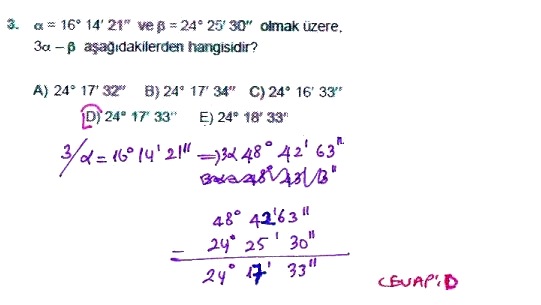 3. α = 16° 14' 21'' ve β = 24° 25' 30'' olmak üzere,
3α – β aşağıdakilerden hangisidir?
A) 24° 17' 32'' B) 24° 17' 34'' C) 24° 16' 33''
D) 24° 17' 33'' E) 24° 18' 33''
3/α = 16° 14' 21'' => 3α 48° 42' 63''
48° 42' 63''
– 24° 25' 30''
24° 17' 33''
CEVAP: D